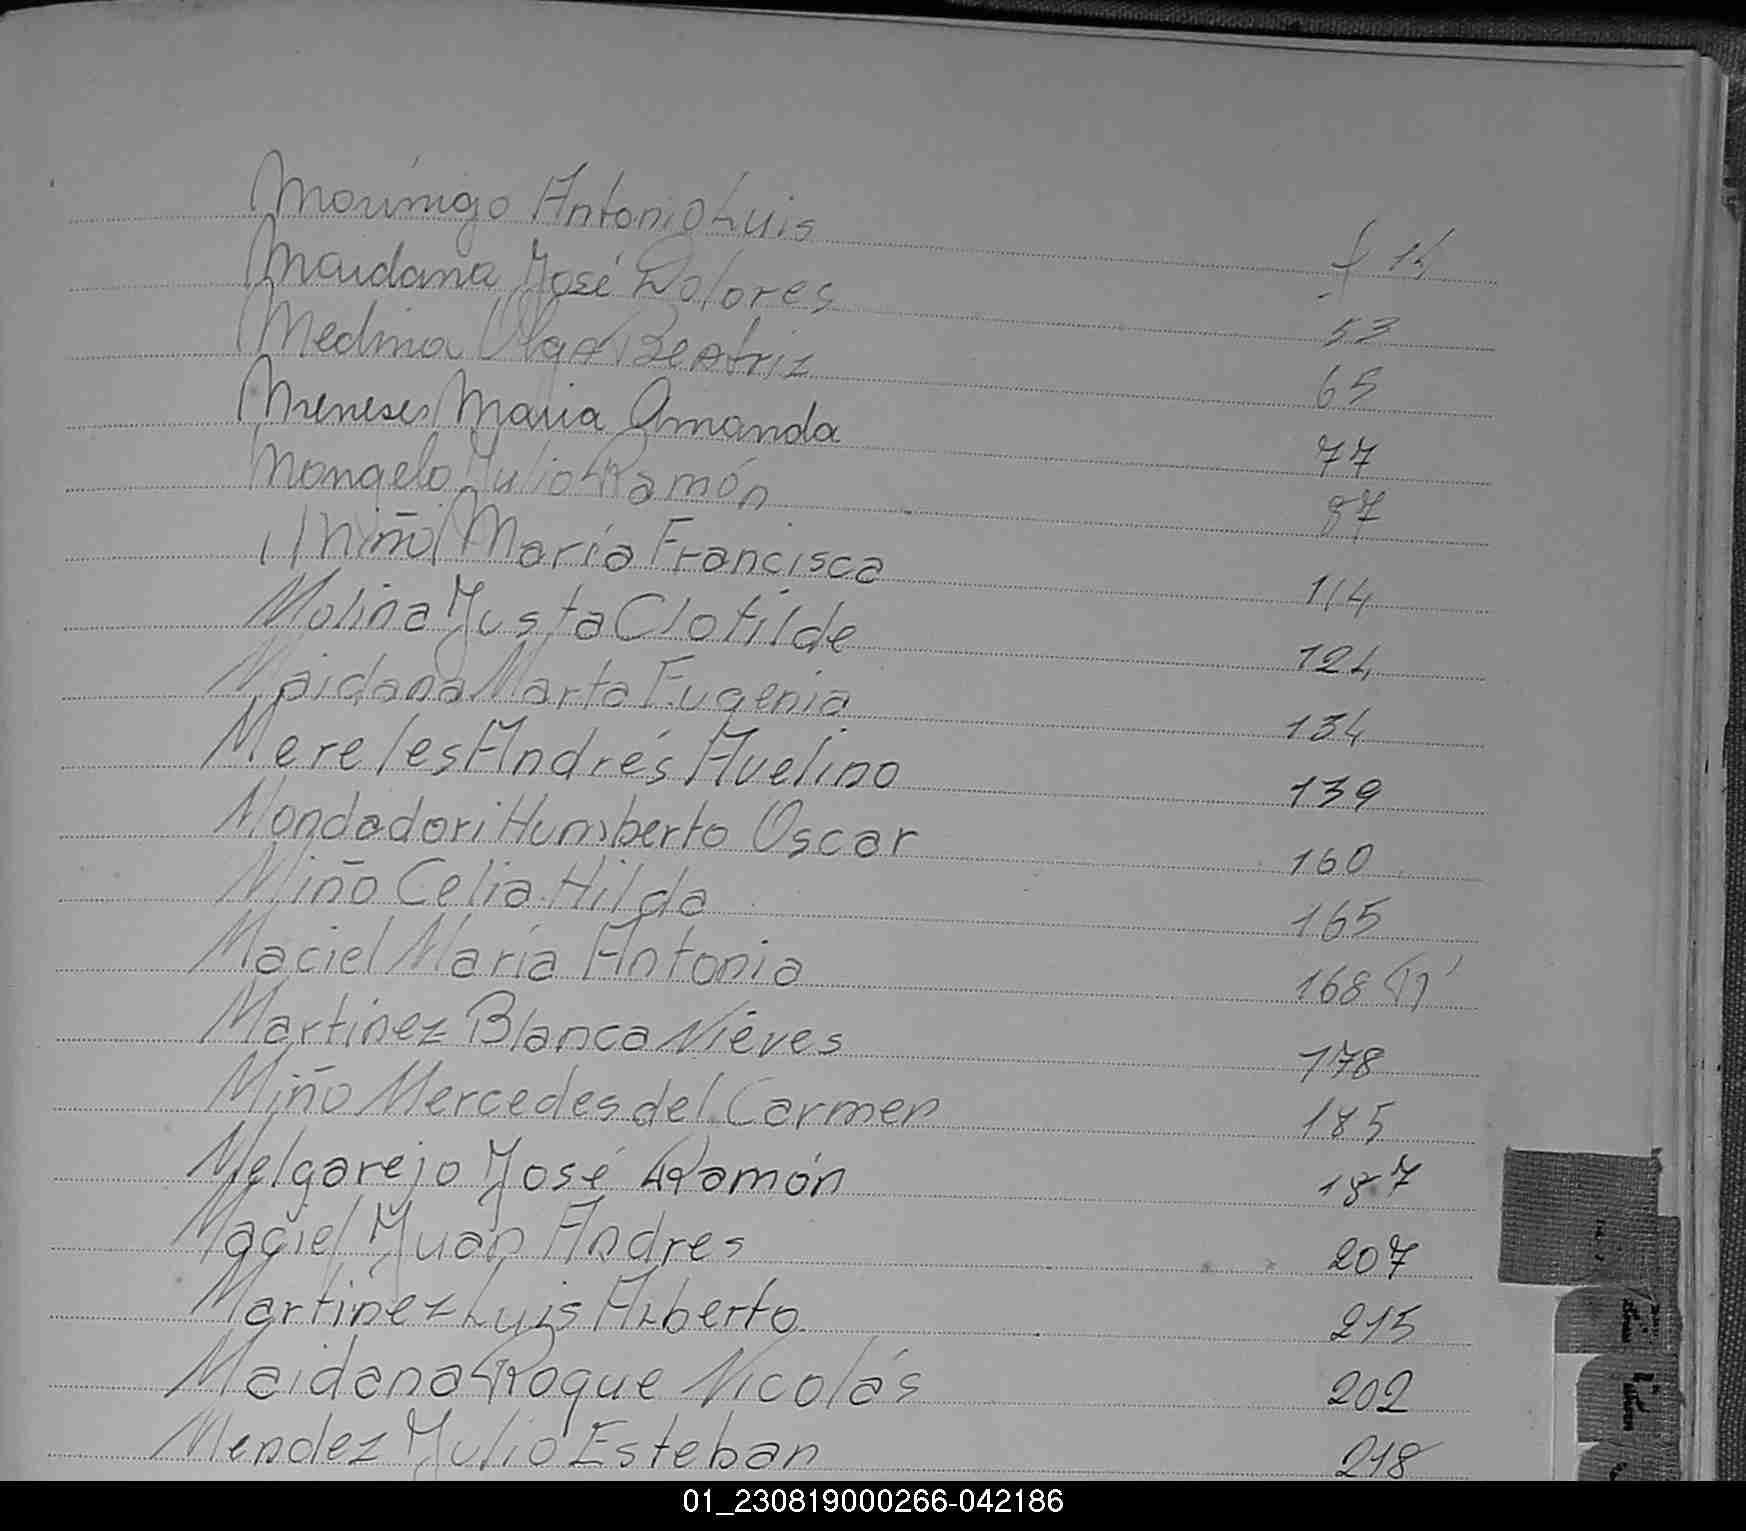 Morínigo Antonio Luis f 14
Maidana José Dolores 53
Medina Olga Beatriz 65
Meneses Maria Amanda 77
Mongelo Julio Ramón 87
Miño María Francisca 114
Molina Justa Clotilde 124
Maidana Marta Eugenia 134
Mereles Andrés Avelino 139
Mondadori Humberto Oscar 160
Miño Celia Hilda 165
Maciel María Antonia 168
Martinez Blanca Nieves 178
Miño Mercedes del Carmen 185
Melgarejo José Ramón 187
Maciel Juan Andres 207
Martinez Luis Alberto 215
Maidana Roque Nicolás 202
Mendez Julio Esteban 218
01_230819000266-042186